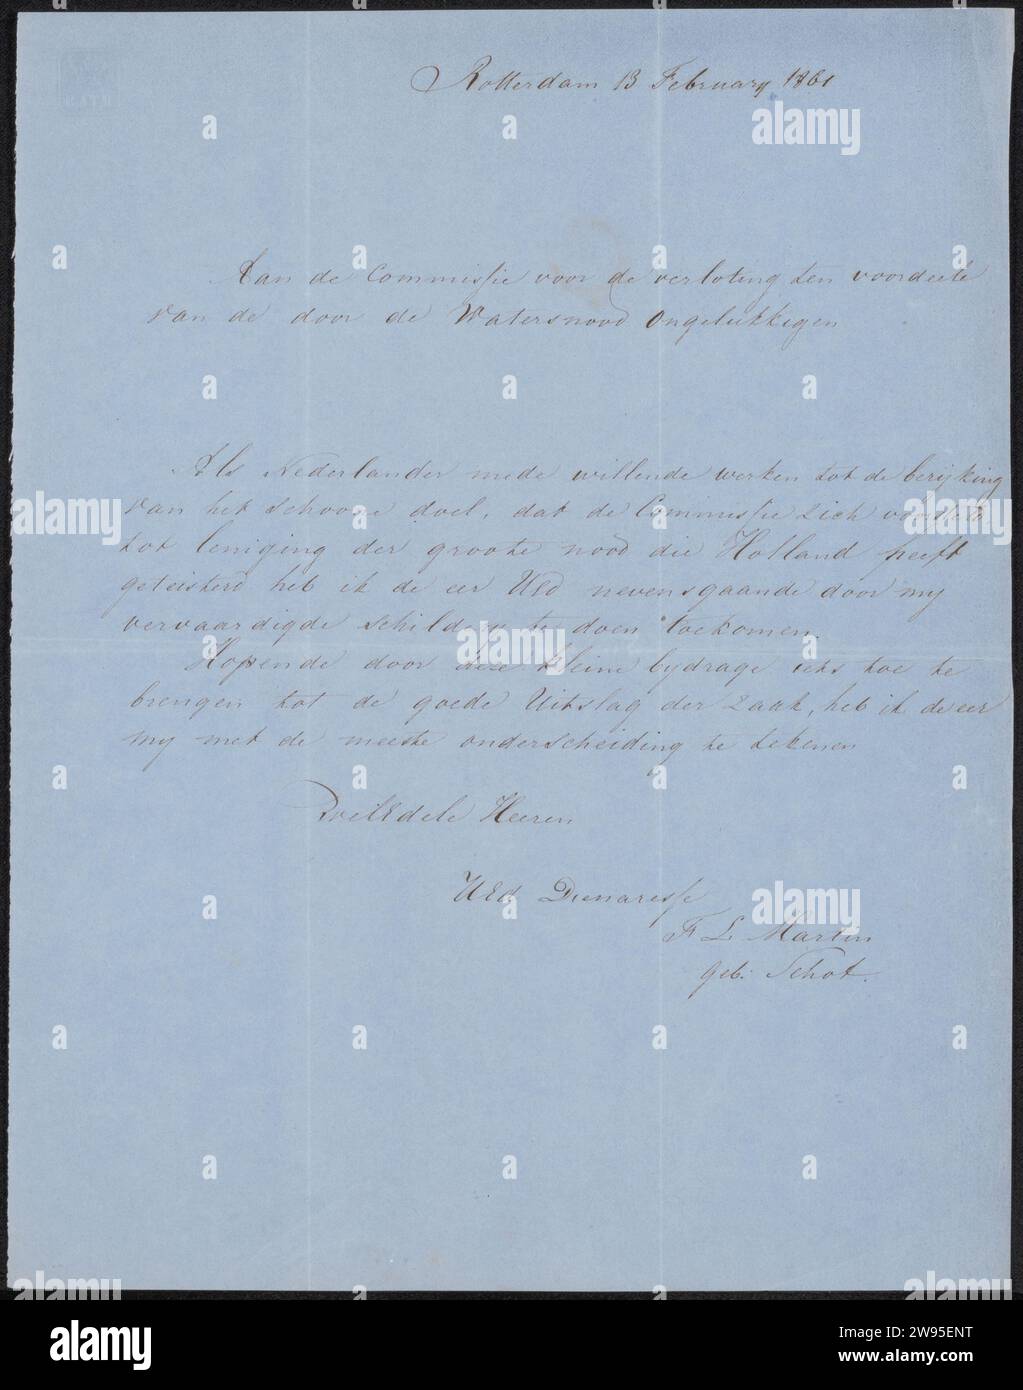 Rotterdam 13 February 1861
Aan de Commissie voor de verloting ten voordeele
van de door de Watersnood Ongelukkigen
Als Nederlander mede willende werken tot de berijking
van het schoone doel, dat de Commissie zich voorstelt
tot leniging der groote nood die Holland heeft
geteisterd heb ik de eer UEd nevensgaande door my
vervaardigde schildery te doen toekomen.
Hopende door deze kleine bydrage iets toe te
brengen tot de goede Uitslag der Zaak, heb ik de eer
my met de meeste onderscheiding te tekenen
WelEdele Heeren
UEd. Dienaresse
F L Martin
geb: Schot.
alamy
a
alamy
2W95ENT
www.alamy.com